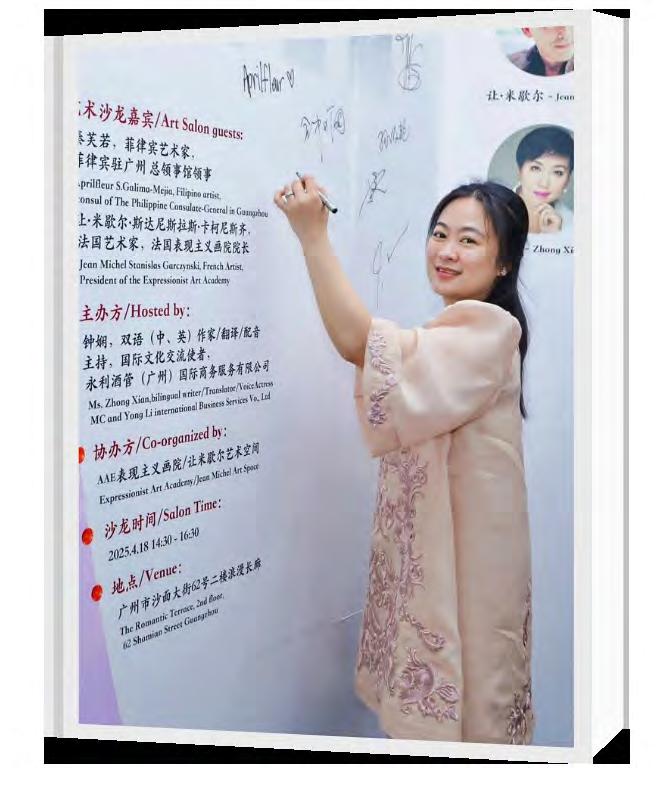 Aprilfleur
让·米歇尔 - Jean
术沙龙嘉宾/Art Salon guests:
芙若，菲律宾艺术家，
律宾驻广州 总领事馆领事
prilfleur S.Galima-Mejia, Filipino artist,
onsul of The Philippine Consulate-General in Guangzhou
·米歇尔·斯达尼斯拉斯·卡柯尼斯齐，
法国艺术家，法国表现主义画院院长
Jean Michel Stanislas Garczynski, French Artist,
President of the Expressionist Art Academy
- Zhong Xi
主办方/Hosted by:
钟娴，双语（中、英）作家/翻译/配音
主持，国际文化交流使者，
永利酒管（广州）国际商务服务有限公司
Ms. Zhong Xian,bilingual writer/Translator/Voice Actress
MC and Yong Li international Business Services Vo., Ltd
协办方/Co-organized by:
AAE表现主义画院/让米歇尔艺术空间
Expressionist Art Academy/Jean Michel Art Space
沙龙时间/Salon Time:
2025.4.18 14:30 - 16:30
地点/Venue:
广州市沙面大街62号二楼浪漫长廊
The Romantic Terrace, 2nd floor,
62 Shamian Street Guangzhou